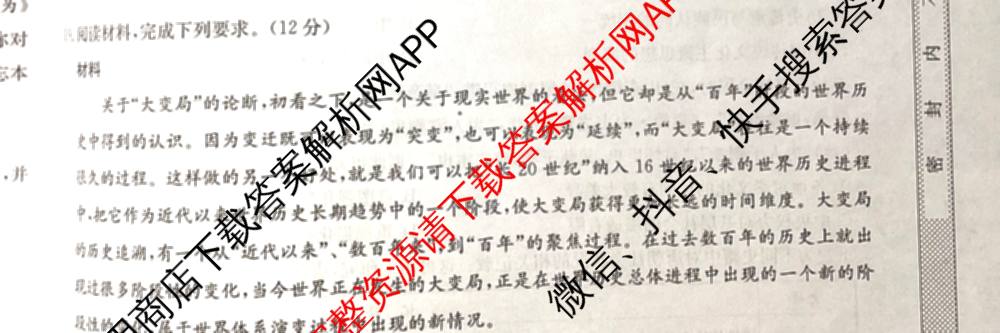 阅读材料,完成下列要求。(12分)
材料
关于“大变局”的论断,初看之下 一个关于现实世界的 ,但它却是从“百年” 的世界历
史中得到的认识。因为变迁既 表现为“突变”,也可以表现为“延续”,而“大变局”往往是一个持续
很久的过程。这样做的另 处,就是我们可以把 20世纪”纳入16世纪以来的世界历史进程
中,把它作为近代以来 历史长期趋势中的一个阶段,使大变局获得更 远的时间维度。大变局
的历史追溯,有一 从“近代以来”、“数百年 到“百年”的聚焦过程。在过去数百年的历史上就出
现过很多阶段性的变化,当今世界正在 生的大变局,正是在世界 变总体进程中出现的一个新的阶
段性的 属于世界体系演变过程 出现的新情况。
为》
你对
忘本
,并
密 封 内
商店下载答案解析网APP
整资源请下载答案解析网APP
微信、抖音、快手搜索答案